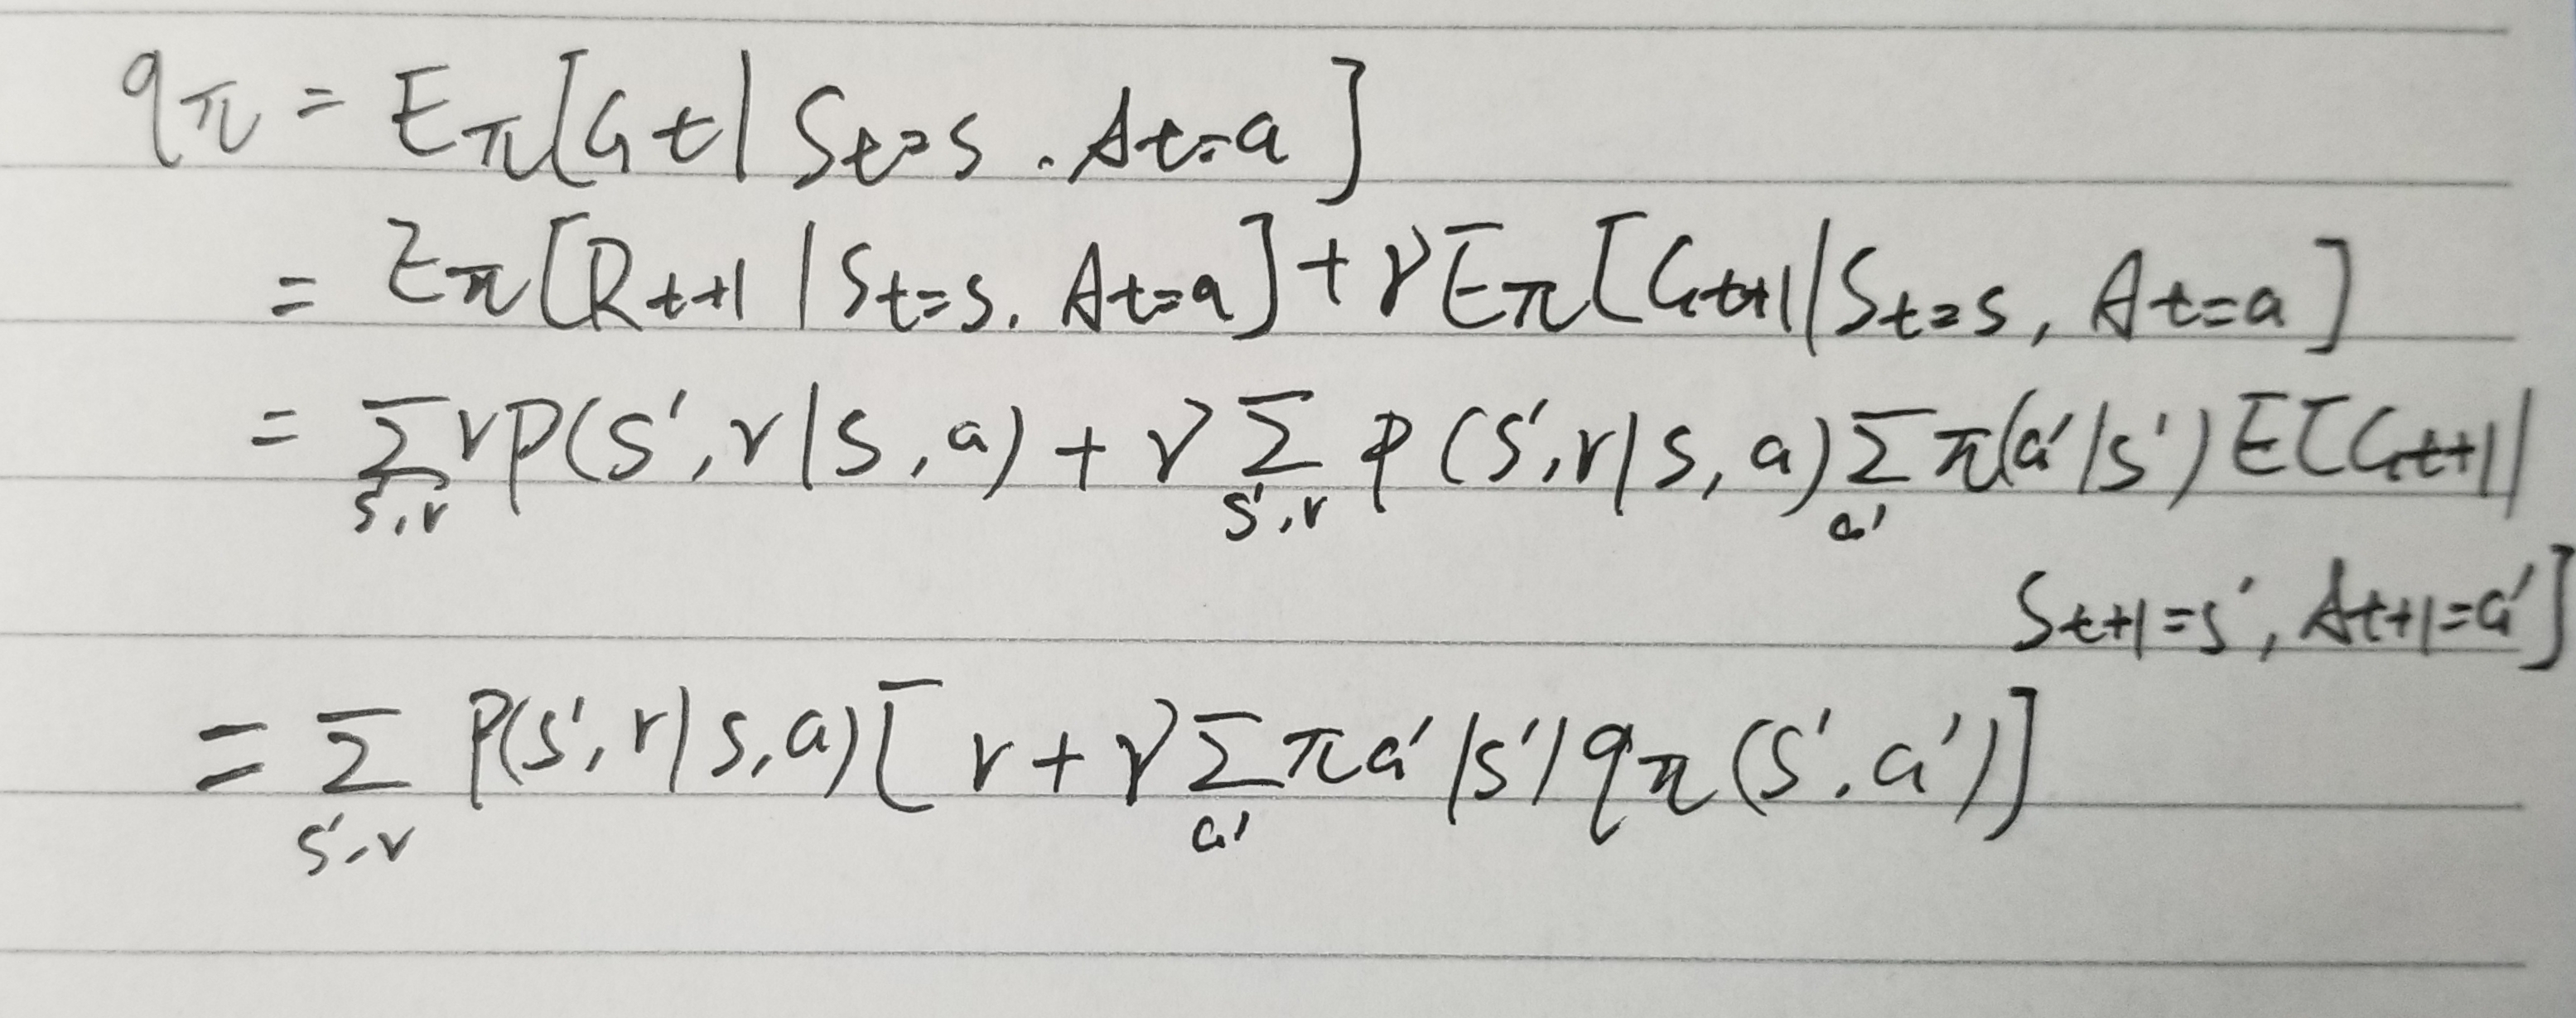 qπ = Eπ[Gt | St=s . At=a]
= Eπ[Rt+1 | St=s. At=a] + γEπ[Gt+1 | St=s, At=a]
= Σ_{s',r} r p(s', r | s, a) + γ Σ_{s',r} p(s', r | s, a) Σ_{a'} π(a' | s') E[Gt+1 |
St+1=s', At+1=a']
= Σ_{s',r} p(s', r | s, a)[r + γ Σ_{a'} π a' | s') qπ(s'. a')]